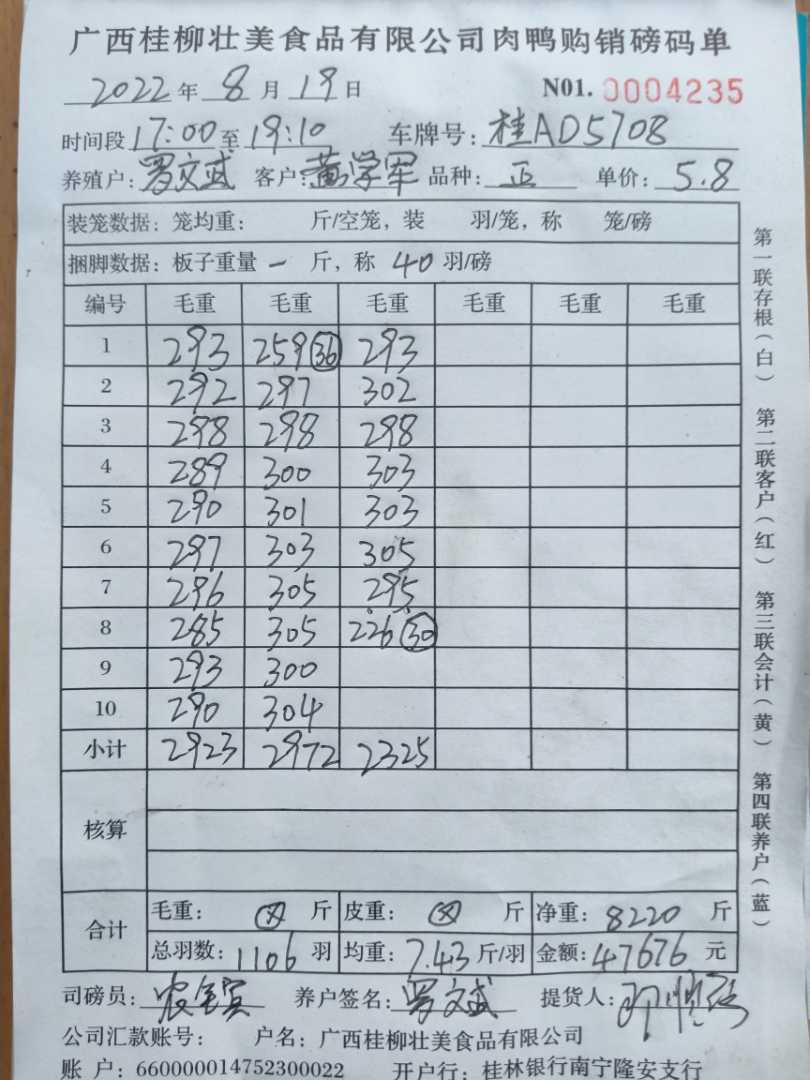 广西桂柳壮美食品有限公司肉鸭购销磅码单
2022年8月19日 N01. 0004235
时间段17:00至19:10 车牌号:桂AD5708
养殖户:罗文武 客户:黄学军 品种:正 单价:5.8
装笼数据:笼均重: 斤/空笼,装 羽/笼,称 笼/磅
捆脚数据:板子重量 一 斤,称 40 羽/磅
编号 毛重 毛重 毛重 毛重 毛重 毛重
1 293 259 36 293
2 292 297 302
3 298 298 298
4 289 300 303
5 290 301 303
6 297 303 305
7 296 305 295
8 285 305 226 30
9 293 300
10 290 304
小计 2923 2972 2325
核算
合计
毛重: 斤 皮重: 斤 净重:8220 斤
总羽数:1106 羽 均重:7.43斤/羽 金额:47676 元
司磅员: 养户签名:罗文武 提货人:
公司汇款账号: 户名:广西桂柳壮美食品有限公司
账 户:660000014752300022 开户行:桂林银行南宁隆安支行
第一联存根(白) 第二联客户(红) 第三联会计(黄) 第四联养户(蓝)